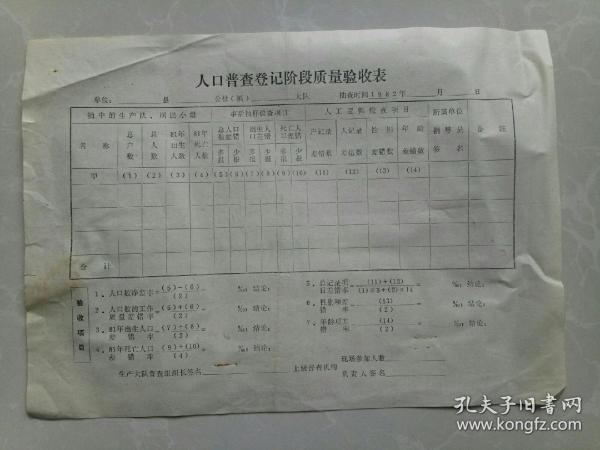 人口普查登记阶段质量验收表
单位: 县 公社(镇) 大队 抽查时间1982年 月 日
抽中的生产队、居民小组 事后抽样检查项目 人工逻辑检查项目 所属单位 备 注
名 称 总户数 总人数 81年出生人数 81年死亡人数 总人口数差错 出生人口差错 死亡人口差错 户记录差错数 人记录差错数 性别差错数 年龄差错数 签名
多报 少报 多报 少报 多报 少报
甲 (1) (2) (3) (4) (5) (6) (7) (8) (9) (10) (11) (12) (13) (14)
合 计
验收项目
1、人口数净差率=(5)-(6)/(2)= ‰; 结论:
2、人口数的工作质量差错率=(5)+(6)/(2)= ‰; 结论:
3、81年出生人口差错率=(7)-(8)/(3)= ‰; 结论:
4、81年死亡人口差错率=(9)+(10)/(4)= ‰; 结论:
5、总记录项目差错率= ‰; 结论:
6、性别项差错率=(13)/(2)= ‰; 结论:
7、年龄项差错率=(14)/(2)= ‰; 结论:
现场参加人数
生产大队普查组组长签名 上级督导机构负责人签名
孔夫子旧书网
www.kongfz.com